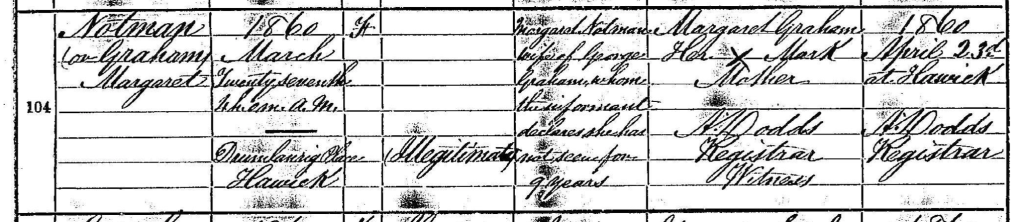 104
Notman
(or Graham)
Margaret
1860
March
Twenty seventh
h. m. A.M.
Drumlanrig
Hawick
F
(Illegitimate)
Margaret Notman
wife of George
Graham, whom
the informant
declares she has
not seen for
9 years
Margaret Graham
Her X Mark
Mother
A. Dodds
Registrar
Witness
1860
April 23d
at Hawick
A. Dodds
Registrar